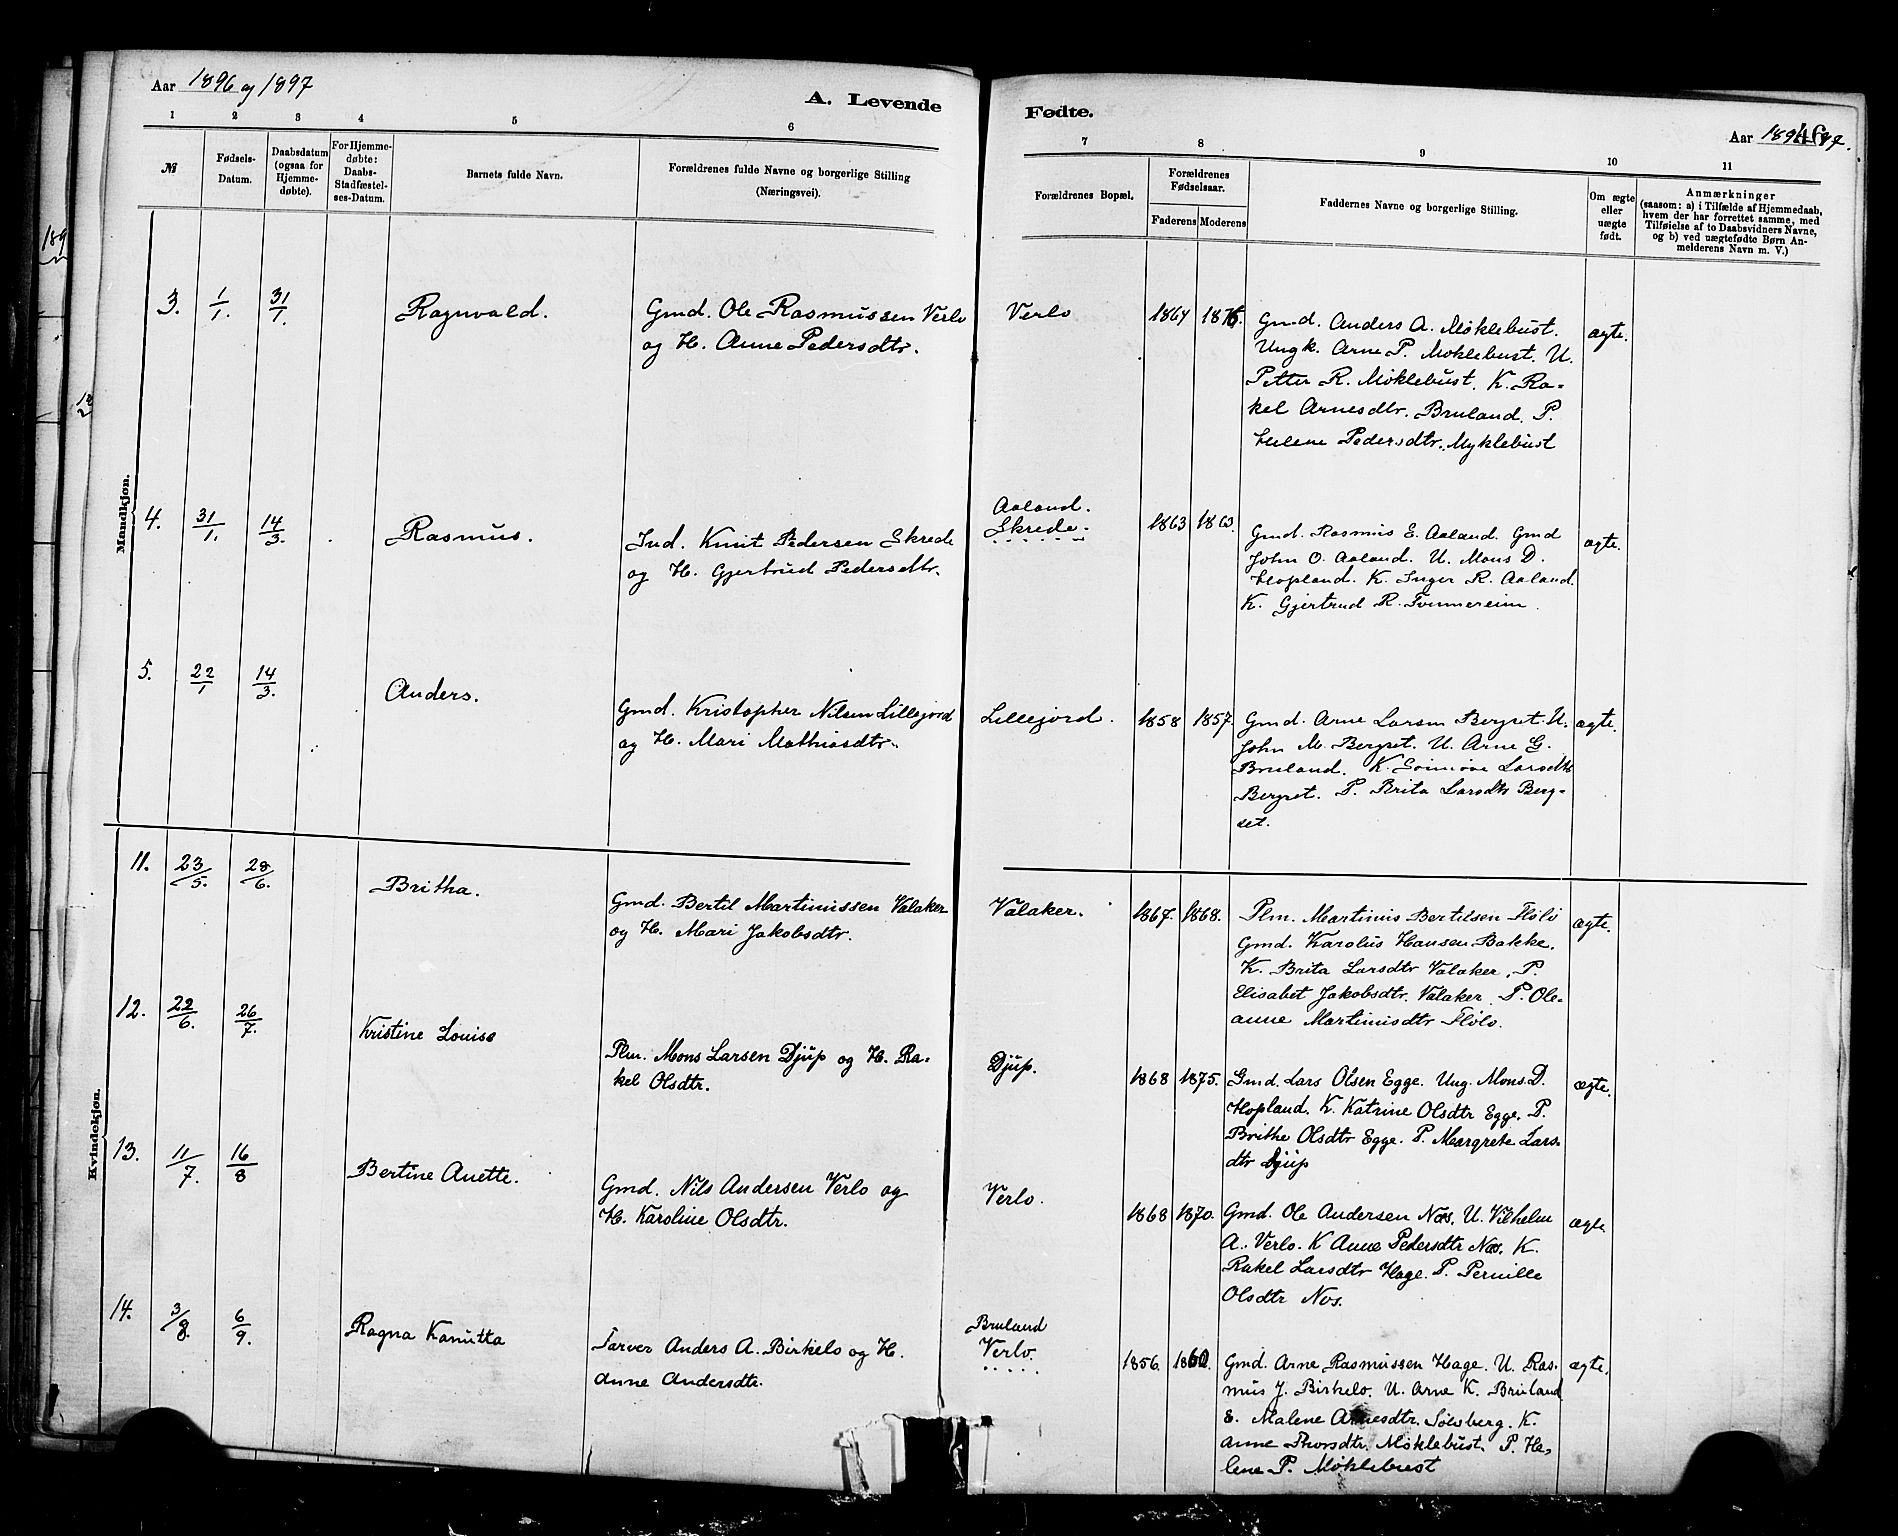 Aar 1896 og 1897
A. Levende
Fødte.
Aar 1896 97.
46
1 2 3 4 5 6 7 8 9 10 11
№
Fødsels-Datum.
Daabsdatum (ogsaa for Hjemmedøbte).
For Hjemmedøbte: Daabs-Stadfæstelses-Datum.
Barnets fulde Navn.
Forældrenes fulde Navne og borgerlige Stilling
(Næringsvei).
Forældrenes Bopæl.
Forældrenes Fødselsaar.
Faderens Moderens
Faddernes Navne og borgerlige Stilling.
Om ægte eller uægte født.
Anmærkninger
(saasom: a) i Tilfælde af Hjemmedaab,
hvem der har forrettet samme, med
Tilføielse af to Daabsvidners Navne,
og b) ved uægtefødte Børn An-
melderens Navn m. V.)
Mandkjøn.
3. 1/1. 31/1. Ragnvald.
Gmd. Ole Rasmussen Verlo
og H. Anne Pedersdtr.
Verlo 1864 1876.
Gmd. Anders A. Møklebust.
Ungk. Arne P. Møklebust. U.
Petter R. Møklebust. K. Ra-
kel Arnesdtr. Bruland. P.
Helene Pedersdtr. Myklebust
ægte.
4. 31/1. 14/3. Rasmus.
Ind. Knut Pedersen Skrede
og H. Gjertrud Pedersdtr.
Aaland.
Skrede.
1863 1863.
Gmd. Rasmus E. Aaland. Gmd
John O. Aaland. U. Mons D.
Hopland. K. Inger R. Aaland.
K. Gjertrud R. Tvinnereim.
ægte.
5. 22/1 14/3. Anders.
Gmd. Kristopher Nilsen Lillejord
og H. Mari Mathiasdtr.
Lillejord. 1858 1857.
Gmd. Arne Larsen Bergset. U.
John M. Bergset. U. Arne G.
Bruland. K. Synnøve Larsdtr
Bergset. P. Brita Larsdtr Berg-
set.
ægte.
Kvindekjøn.
11. 23/5. 28/6. Britha.
Gmd. Bertil Martinussen Valaker
og H. Mari Jakobsdtr.
Valaker. 1867. 1868.
Plm. Martinus Bertilsen Flølo
Gmd. Karolus Hansen Bakke.
K. Brita Larsdtr Valaker. P.
Elisabet Jakobsdtr. Valaker. P. Ole-
anne Martinusdtr Flølo.
ægte.
12. 22/6. 26/7. Kristine Louise
Plm. Mons Larsen Djup og H. Ra-
kel Olsdtr.
Djup. 1868 1875.
Gmd. Lars Olsen Egge. Ung. Mons. D.
Hopland. K. Katrine Olsdtr Egge. P.
Brithe Olsdtr Egge. P. Margrete Lars-
dtr Djup
ægte.
13. 11/7. 16/8 Bertine Anette.
Gmd. Nils Andersen Verlo og
H. Karoline Olsdtr.
Verlo. 1868 1870.
Gmd. Ole Andersen Nos. U. Vilhelm
A. Verlo. K Anne Pedersdtr Nos. K.
Rakel Larsdtr Hage. P. Pernille
Olsdtr Nos.
ægte
14. 3/8. 6/9. Ragna Kanutta
Farver Anders A. Birkelo og H.
Anne Andersdtr.
Bruland
Verlo.
1856. 1860.
Gmd. Arne Rasmussen Hage. U. Ras-
mus J. Birkelo. U. Arne K. Bruland
E. Malene Arnesdtr. Solvberg. K.
Anne Thorsdtr. Møklebust. P. He-
lene P. Møklebust
ægte.